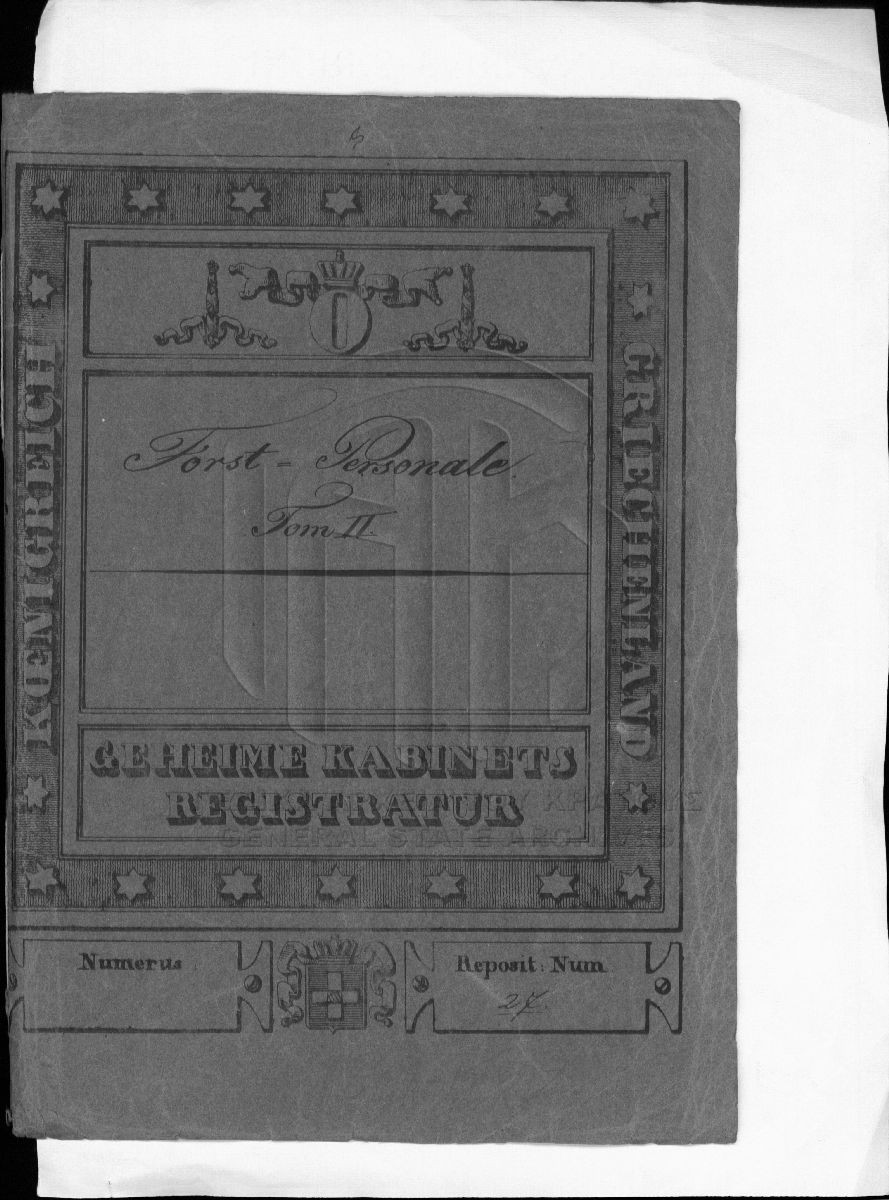 KOENIGREICH
GRIECHENLAND
Forst = Personale.
Tom II.
GEHEIME KABINETS
REGISTRATUR
GENERAL STATE ARCHIVES
Numerus
Reposit: Num
27.